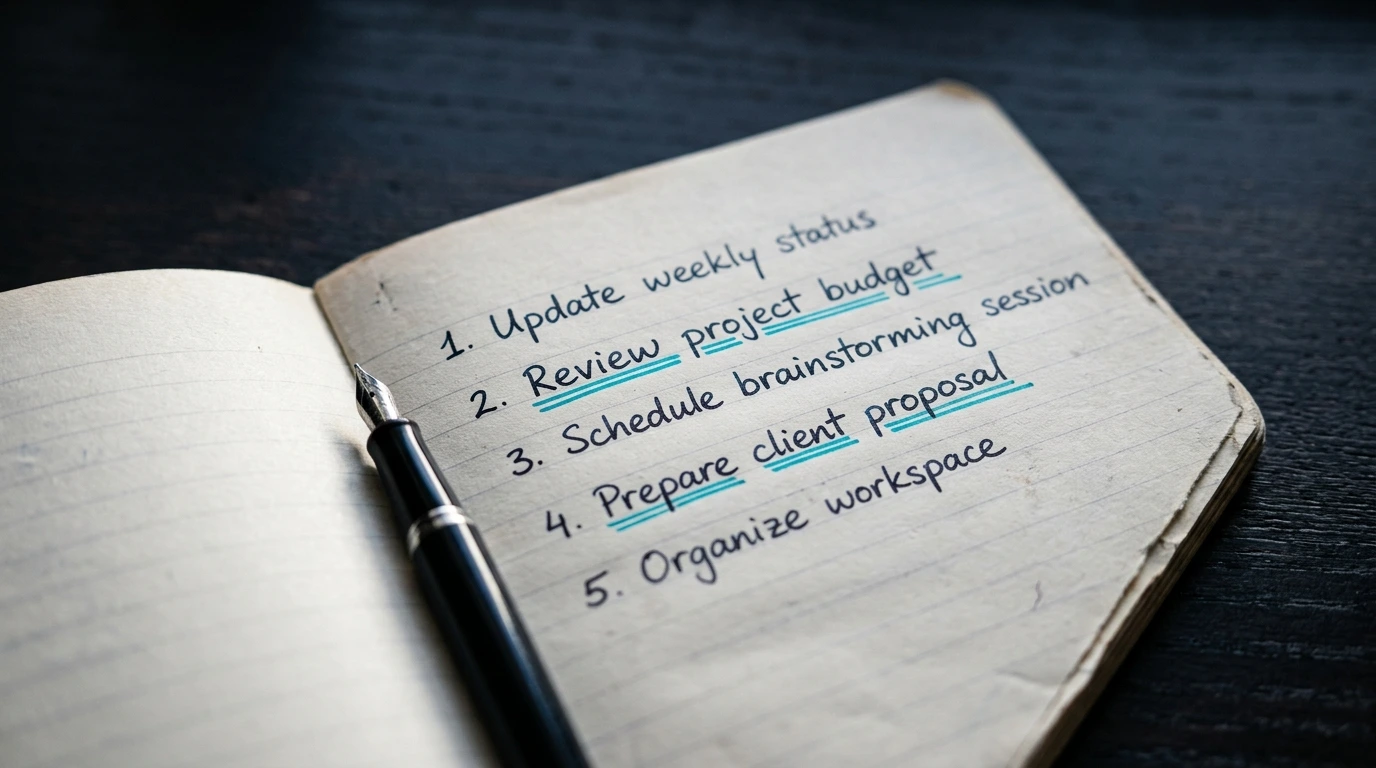 1. Update weekly status
2. Review project budget
3. Schedule brainstorming session
4. Prepare client proposal
5. Organize workspace